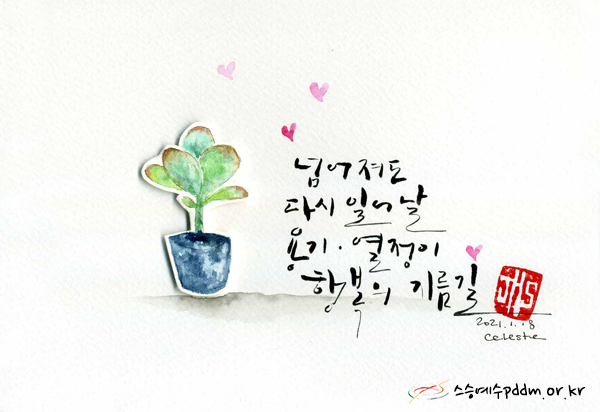 넘어져도
다시 일어날
용기·열정이
행복의 기름길
JHS
2021.1.18
Celeste
스승예수pddm.or.kr